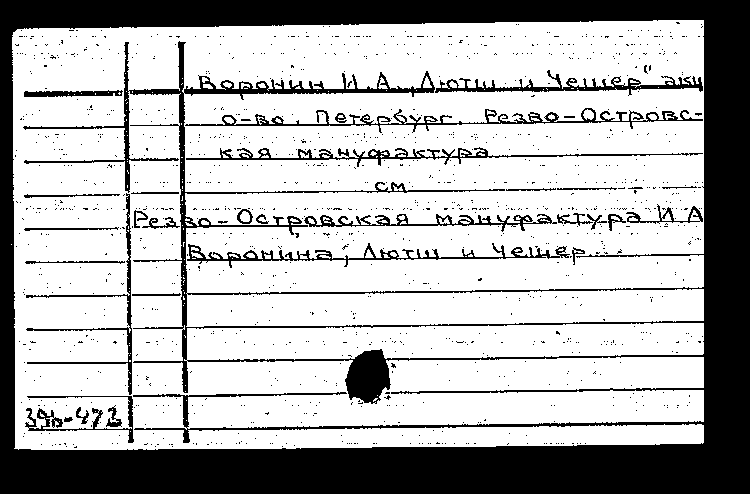 „Воронин И.А., Лютш и Чешер" акц
о-во. Петербург. Резво-Островс-
кая мануфактура
см
Резво-Островская мануфактура И А
Воронина, Лютш и Чешер...